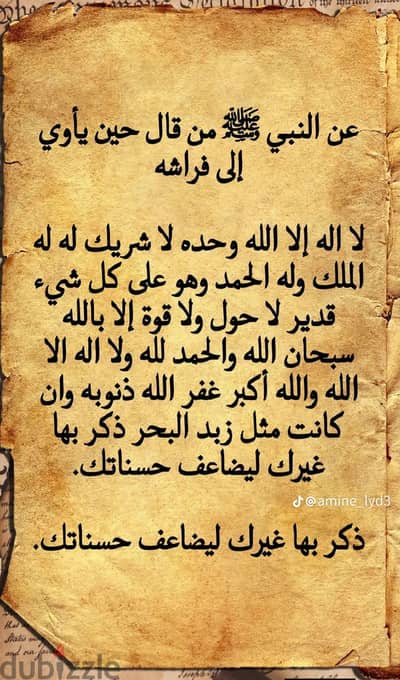 عن النبي ﷺ من قال حين يأوي
إلى فراشه
لا اله إلا الله وحده لا شريك له له
الملك وله الحمد وهو على كل شيء
قدير لا حول ولا قوة إلا بالله
سبحان الله والحمد لله ولا اله الا
الله والله أكبر غفر الله ذنوبه وان
كانت مثل زبد البحر ذكر بها
غيرك ليضاعف حسناتك.
@amine_lyd3
ذكر بها غيرك ليضاعف حسناتك.
dubizzle